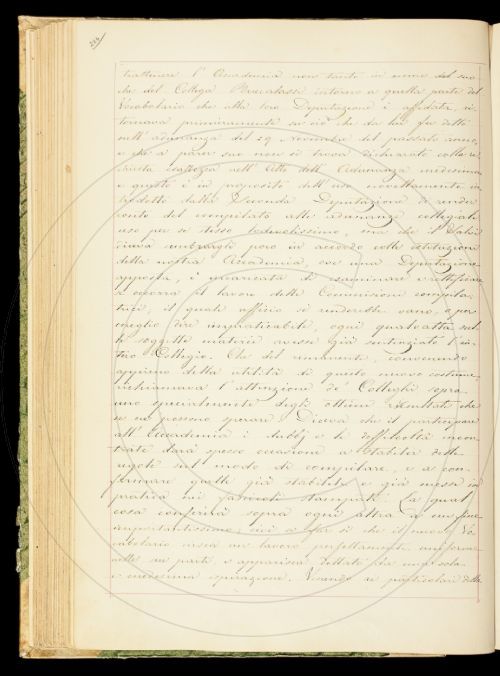 trattenere l'Accademia non tanto in nome del suo
che del Collega intorno a quella parte del
Vocabolario che alla loro Deputazione è affidata, ri-
tornava primieramente su ciò che da lui fu detto
nell'adunanza del 29 Novembre del passato anno,
e che a parer suo non si trova dichiarato colla ri-
chiesta esattezza nell'Atto dell'Adunanza medesima
e questo è in proposito dell'uso novellamente in-
trodotto dalla Seconda Deputazione di render
conto del compilato alle adunanze collegiali
uso per se stesso ma che il
poco in accordo colle istituzioni
della nostra Accademia, ove una Deputazione
apposita, è incaricata di esaminare e rettificare
il lavoro delle Commissioni compila-
trici, il quale ufficio si renderebbe vano, o per
meglio dire impraticabile, ogni qualvolta sul-
le soggette materie avesse già sentenziato l'in-
tiero Collegio. Che del rimanente, convenendo
appieno della utilità di questo nuovo costume,
richiamava l'attenzione de' Colleghi sopra
uno specialmente degli ottimi resultati che
se ne possono sperare. Diceva che il partecipare
all'Accademia i dubbj e le difficoltà incon-
trate darà spesso occasione a stabilir delle
regole sul modo di compilare, e a con-
fermare quelle già stabilite e già messe in
pratica nei fascicoli stampati: la qual
cosa conferirà sopra ogni altra a un fine
importantissimo, cioè a far sì che il nuovo Vo-
cabolario riesca un lavoro perfettamente uniforme
nelle sue parti, e apparisca dettato da una sola
e medesima operazione. Venendo ai particolari della